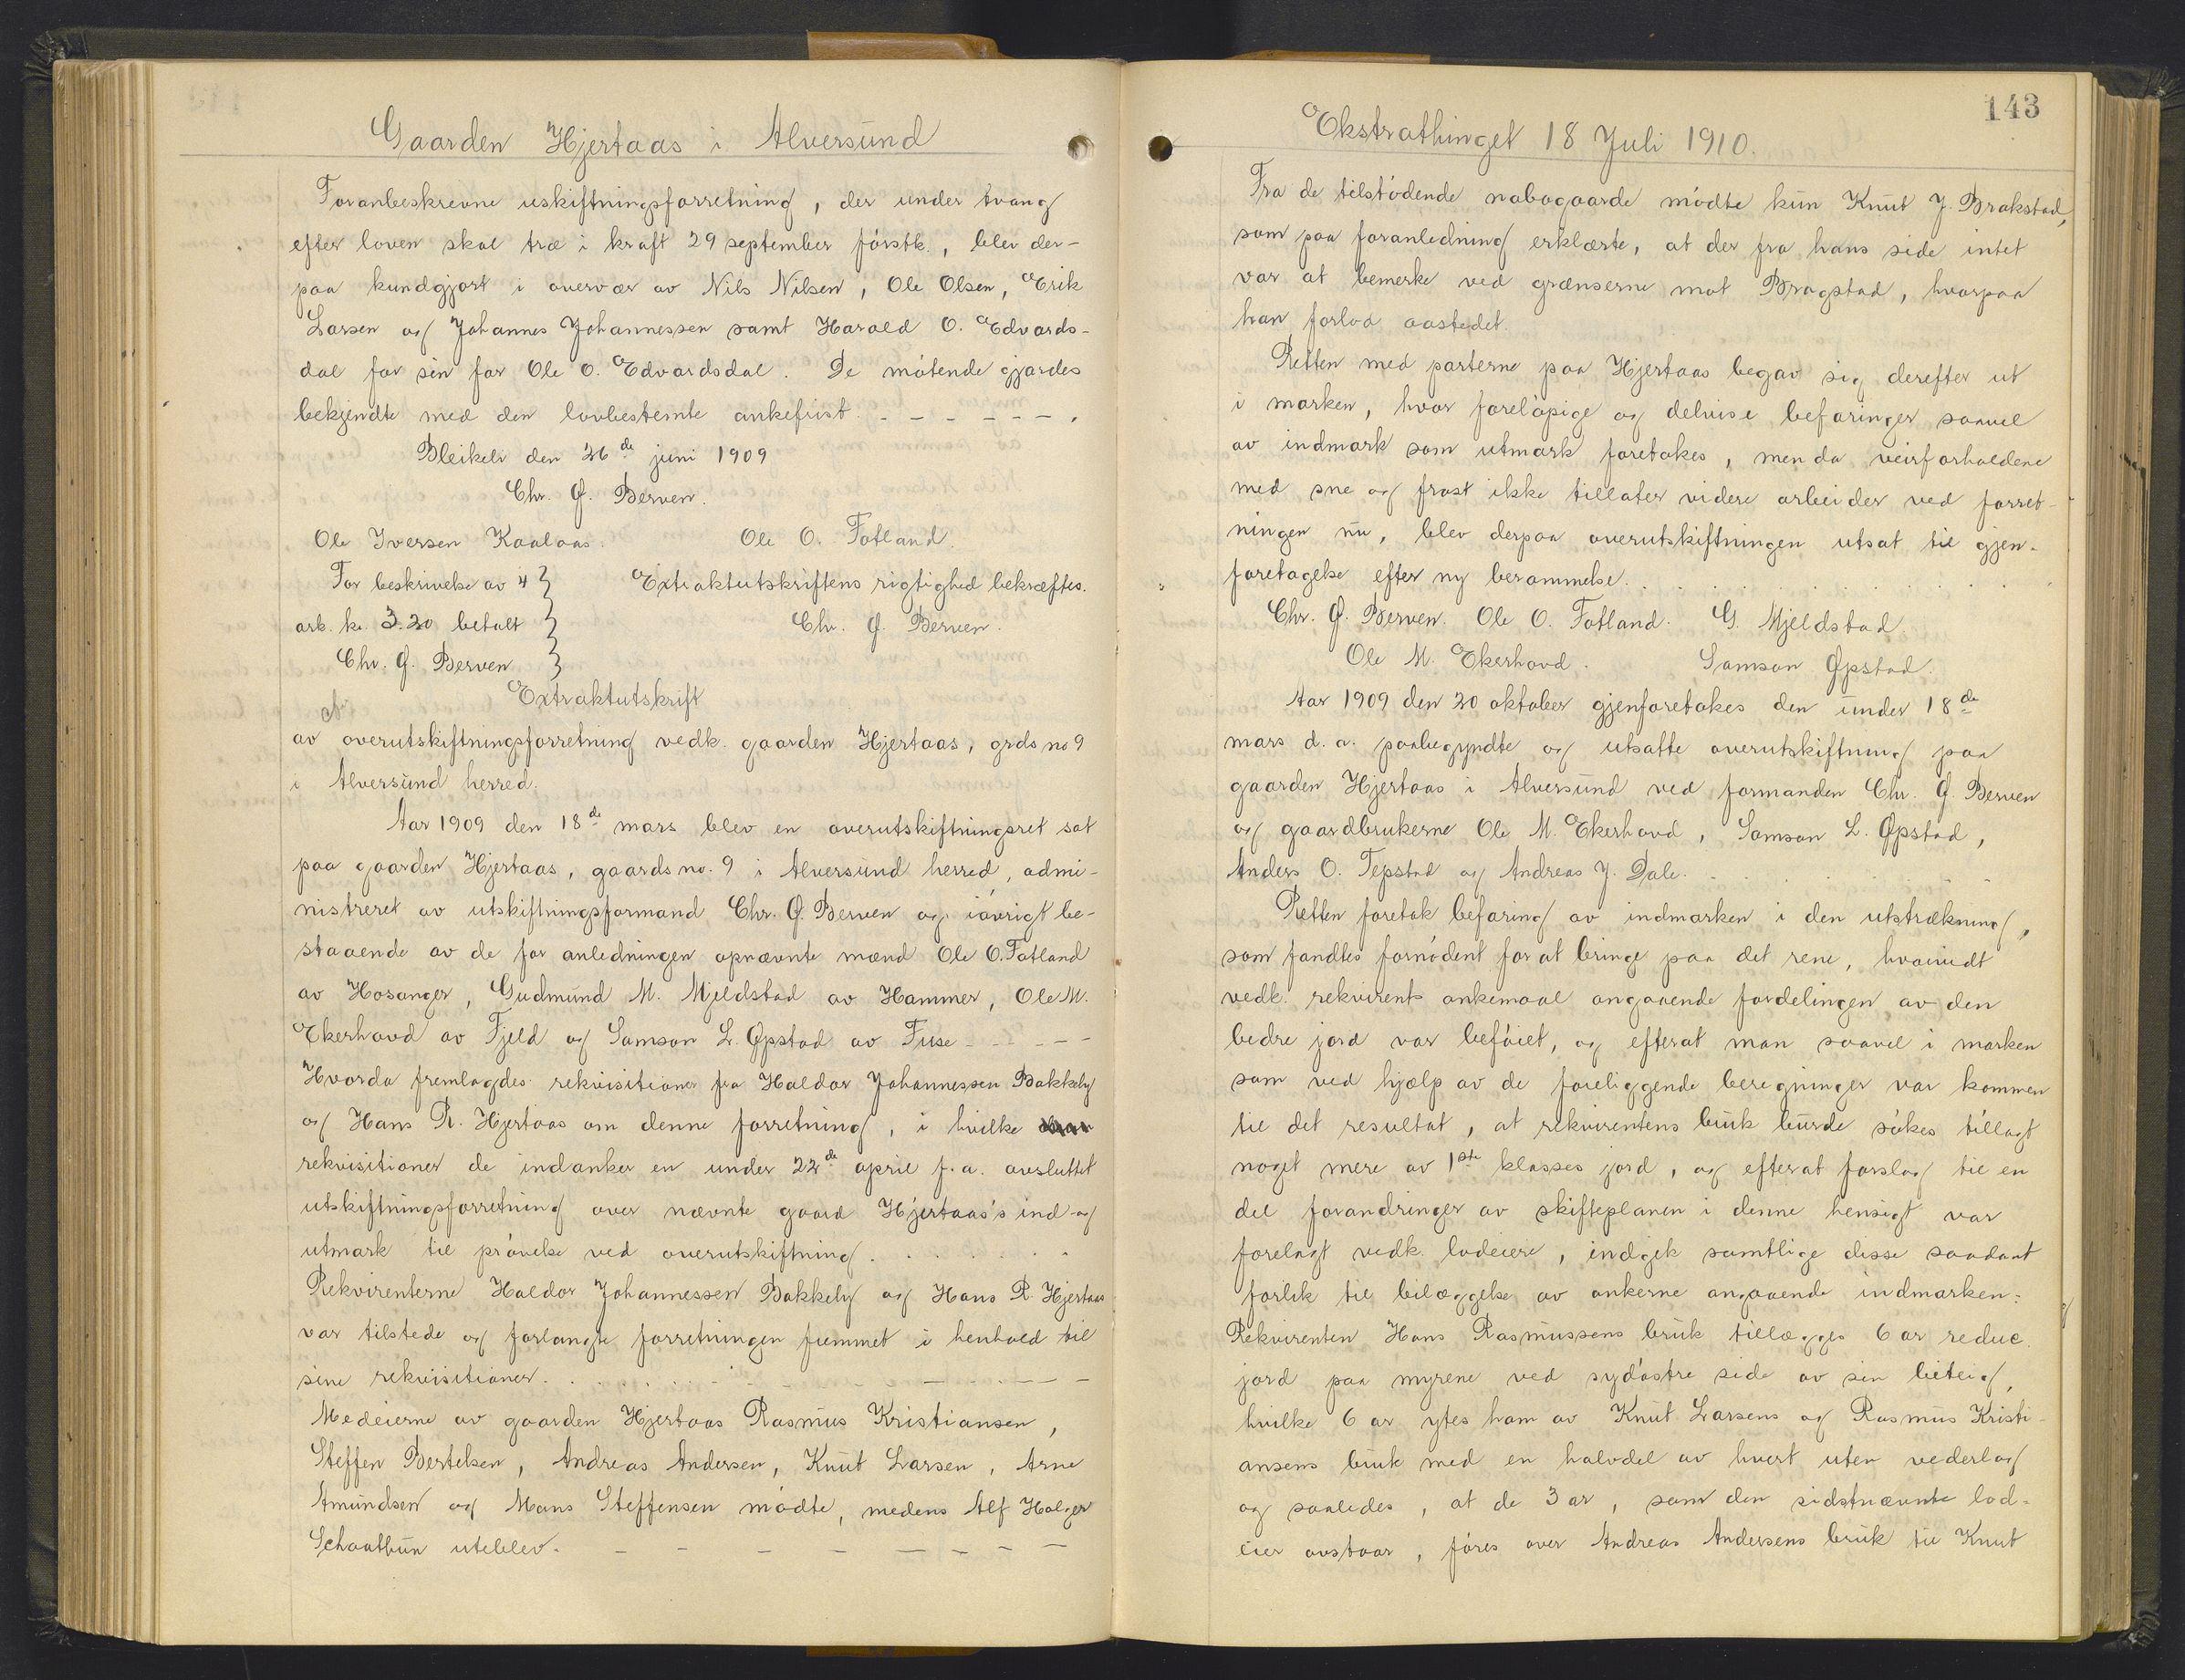 Gaarden Hjertaas i Alversund
Foranbeskrevne uskiftningsforretning, der under tvang
efter loven skal træ i kraft 29 september førstk., blev der-
paa kundgjort i overvær av Nils Nilsen, Ole Olsen, Erik
Larsen og Johannes Johannessen samt Harald O. Edvards-
dal for sin far Ole O. Edvardsdal. De møtende gjordes
bekjendte med den lovbestemte ankefrist. - - - - - - .
Bleikeli den 26de juni 1909
Chr. G. Berven.
Ole Iversen Kaalaas. Ole O. Fotland.
For beskrivelse av 4 Extraktutskriftens rigtighed bekræftes.
ark. kr. 3.20 betalt Chr. G. Berven.
Chr. G. Berven
Extraktutskrift
av overutskiftningsforretning vedk. gaarden Hjertaas, grds no 9
i Alversund herred.
Aar 1909 den 18de mars blev en overutskiftningsret sat
paa gaarden Hjertaas, gaards no. 9 i Alversund herred, admi-
nistreret av utskiftningsformand Chr. G. Berven og iøvrigt be-
staaende av de for anledningen opnævnte mænd Ole O. Fotland
av Hosanger, Gudmund M. Mjeldstad av Hammer, Ole M.
Ekerhovd av Fjeld og Samson L. Øpstad av Fuse - - - - -
Hvorda fremlagdes rekvisitioner fra Haldor Johannessen Bakkely
og Hans R. Hjertaas om denne forretning, i hvilke
rekvisitioner de indanker en under 22de april f.a. avsluttet
utskiftningsforretning over nævnte gaard Hjertaas's ind- og
utmark til prøvelse ved overutskiftning. . . . . . . .
Rekvirenterne Haldor Johannessen Bakkely og Hans R. Hjertaas
var tilstede og forlangte forretningen fremmet i henhold til
sine rekvisitioner. . . . . . . - - - - - - - -
Medeierne av gaarden Hjertaas Rasmus Kristiansen,
Steffen Bertelsen, Andreas Andersen, Knut Larsen, Arne
Amundsen og Mons Steffensen mødte, medens Alf Holger
Schaathun uteblev. - - - - - - - - -
143
Ekstrathinget 18 Juli 1910.
Fra de tilstødende nabogaarde mødte kun Knut J. Brakstad,
som paa foranledning erklærte, at der fra hans side intet
var at bemerke ved grænserne mot Bragstad, hvorpaa
han forlod aastedet.
Retten med parterne paa Hjertaas begav sig derefter ut
i marken, hvor foreløpige og delvise befaringer saavel
av indmark som utmark foretokes, men da veirforholdene
med sne og frost ikke tillater videre arbeider ved forret-
ningen nu, blev derpaa overutskiftningen utsat til gjen-
foretagelse efter ny berammelse. . . . . . . . . . .
Chr. G. Berven. Ole O. Fotland. G. Mjeldstad
Ole M. Ekerhovd. Samson Øpstad.
Aar 1909 den 20 oktober gjenforetokes den under 18de
mars d.a. paabegyndte og utsatte overutskiftning paa
gaarden Hjertaas i Alversund ved formanden Chr. G. Berven
og gaardbrukerne Ole M. Ekerhovd, Samson L. Øpstad,
Anders O. Tepstad og Andreas J. Dale. . . . . . . -
Retten foretok befaring av indmarken i den utstrækning,
som fandtes fornødent for at bringe paa det rene, hvorvidt
vedk. rekvirents ankemaal angaaende fordelingen av den
bedre jord var beføiet, og efterat man saavel i marken
som ved hjælp av de foreliggende beregninger var kommen
til det resultat, at rekvirentens bruk burde søkes tillagt
noget mere av 1ste klasses jord, og efterat forslag til en
del forandringer av skifteplanen i denne hensigt var
forelagt vedk. lodeiere, indgik samtlige disse saadant
forlik til bilæggelse av ankerne angaaende indmarken:
Rekvirenten Hans Rasmussens bruk tillægges 6 ar reduc.
jord paa myrene ved sydøstre side av sin liteig,
hvilke 6 ar ytes ham av Knut Larsens og Rasmus Kristi-
ansens bruk med en halvdel av hvert uten vederlag
og saaledes, at de 3 ar, som den sidstnævnte lod-
eier avstaar, føres over Andreas Andersens bruk til Knut